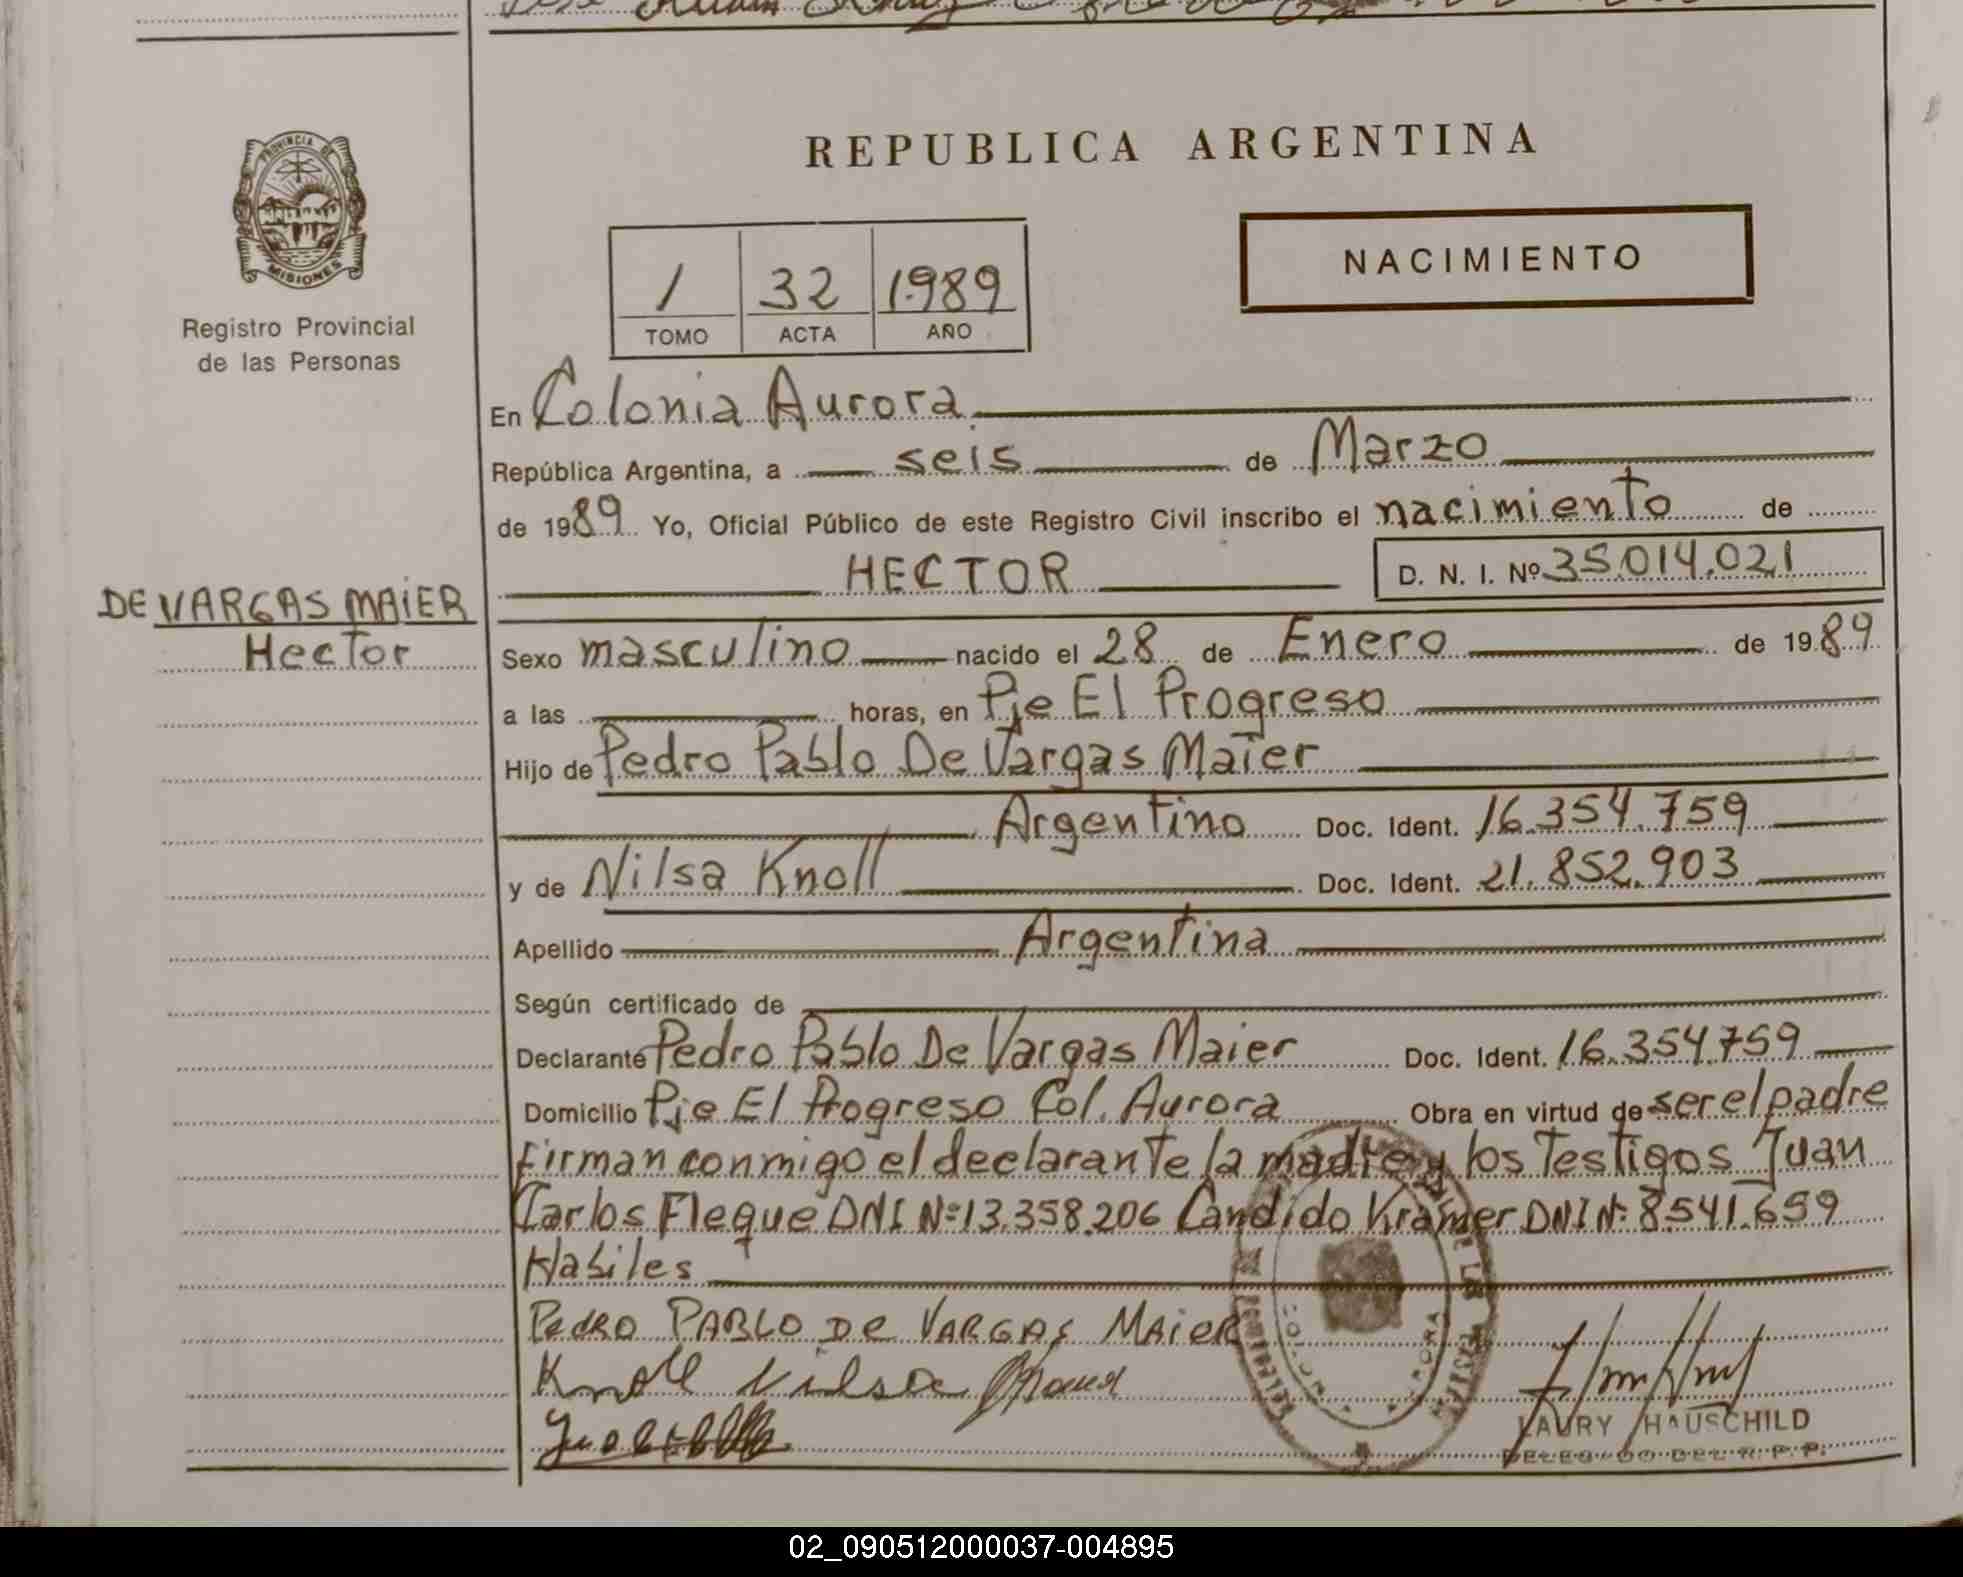 PROVINCIA DE
MISIONES
Registro Provincial
de las Personas
REPUBLICA ARGENTINA
NACIMIENTO
1 32 1989
TOMO ACTA AÑO
En Colonia Aurora
República Argentina, a seis de Marzo
de 1989 Yo, Oficial Público de este Registro Civil inscribo el nacimiento de
HECTOR D. N. I. Nº 35.014.021
DE VARGAS MAIER
Hector
Sexo masculino nacido el 28 de Enero de 1989
a las horas, en Pje El Progreso
Hijo de Pedro Pablo De Vargas Maier
Argentino Doc. Ident. 16.354.759
y de Nilsa Knoll Doc. Ident. 21.852.903
Apellido Argentina
Según certificado de
Declarante Pedro Pablo De Vargas Maier Doc. Ident. 16.354.759
Domicilio Pje El Progreso Col. Aurora Obra en virtud de ser el padre
Firman conmigo el declarante la madre y los Testigos Juan
Carlos Fleque DNI Nº 13.358.206 Candido Kramer DNI Nº 8.541.659
Habiles
PedRO PABLO De VARGAS MAieR
Knoll Nilsa
LAURY HAUSCHILD
DELEGADO DEL R. P. P.
02_090512000037-004895